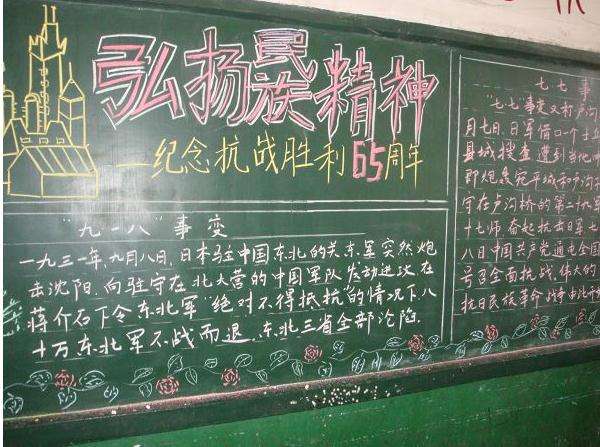 弘扬民族精神
—纪念抗战胜利65周年
"九一八"事变
一九三一年,九月八日,日本驻中国东北的关东军突然炮
击沈阳,向驻守在北大营的中国军队发动进攻在
蒋介石下令东北军"绝对不得抵抗"的情况下八
十万东北军不战而退,东北三省全部沦陷.
七七事
七七事变又称卢沟
月七日,日军借口个士兵
县城搜查遭到当地
即炮轰宛平城和卢沟
守在卢沟桥的第二十九军
十七师奋起抗击日军七
八日中国共产党通电全国
号召全面抗战.伟大的
抗日民族革命战争由此